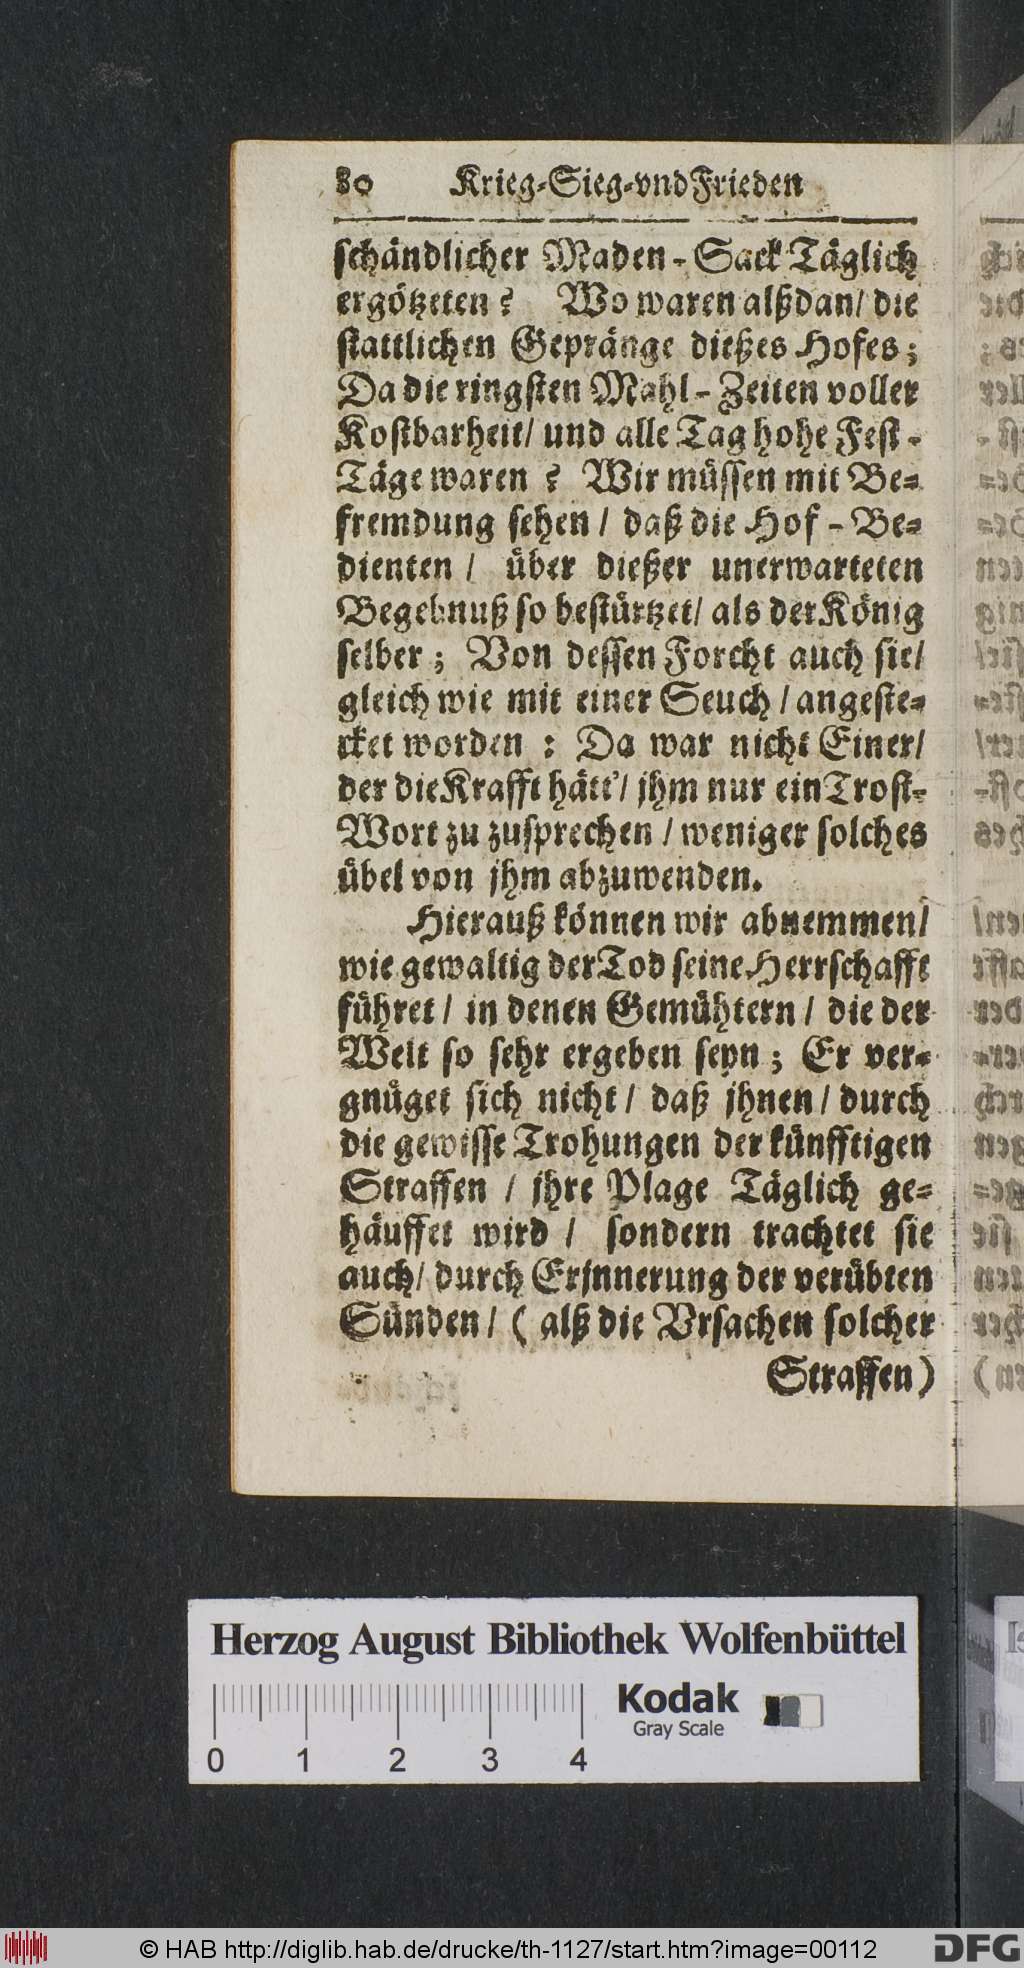 80 Krieg-Sieg-vnd Frieden
schändlicher Maden-Sack Täglich
ergötzeten? Wo waren alßdan/ die
stattlichen Gepränge dießes Hofes;
Da die ringsten Mahl-Zeiten voller
Kostbarheit/ und alle Tag hohe Fest-
Täge waren? Wir müssen mit Be-
fremdung sehen/ daß die Hof-Be-
dienten/ über dießer unerwarteten
Begebnuß so bestürtzet/ als der König
selber; Von dessen Forcht auch sie/
gleich wie mit einer Seuch/ angeste-
cket worden: Da war nicht Einer/
der die Krafft hätt'/ jhm nur ein Trost-
Wort zu zusprechen/ weniger solches
übel von jhm abzuwenden.
Hierauß können wir abnemmen/
wie gewaltig der Tod seine Herrschafft
führet/ in denen Gemühtern/ die der
Welt so sehr ergeben seyn; Er ver-
gnüget sich nicht/ daß jhnen/ durch
die gewisse Trohungen der künfftigen
Straffen/ jhre Plage Täglich ge-
häuffet wird/ sondern trachtet sie
auch/ durch Erjnnerung der verübten
Sünden/ (alß die Vrsachen solcher
Straffen)
Herzog August Bibliothek Wolfenbüttel
Kodak
Gray Scale
0 1 2 3 4
© HAB http://diglib.hab.de/drucke/th-1127/start.htm?image=00112
DFG